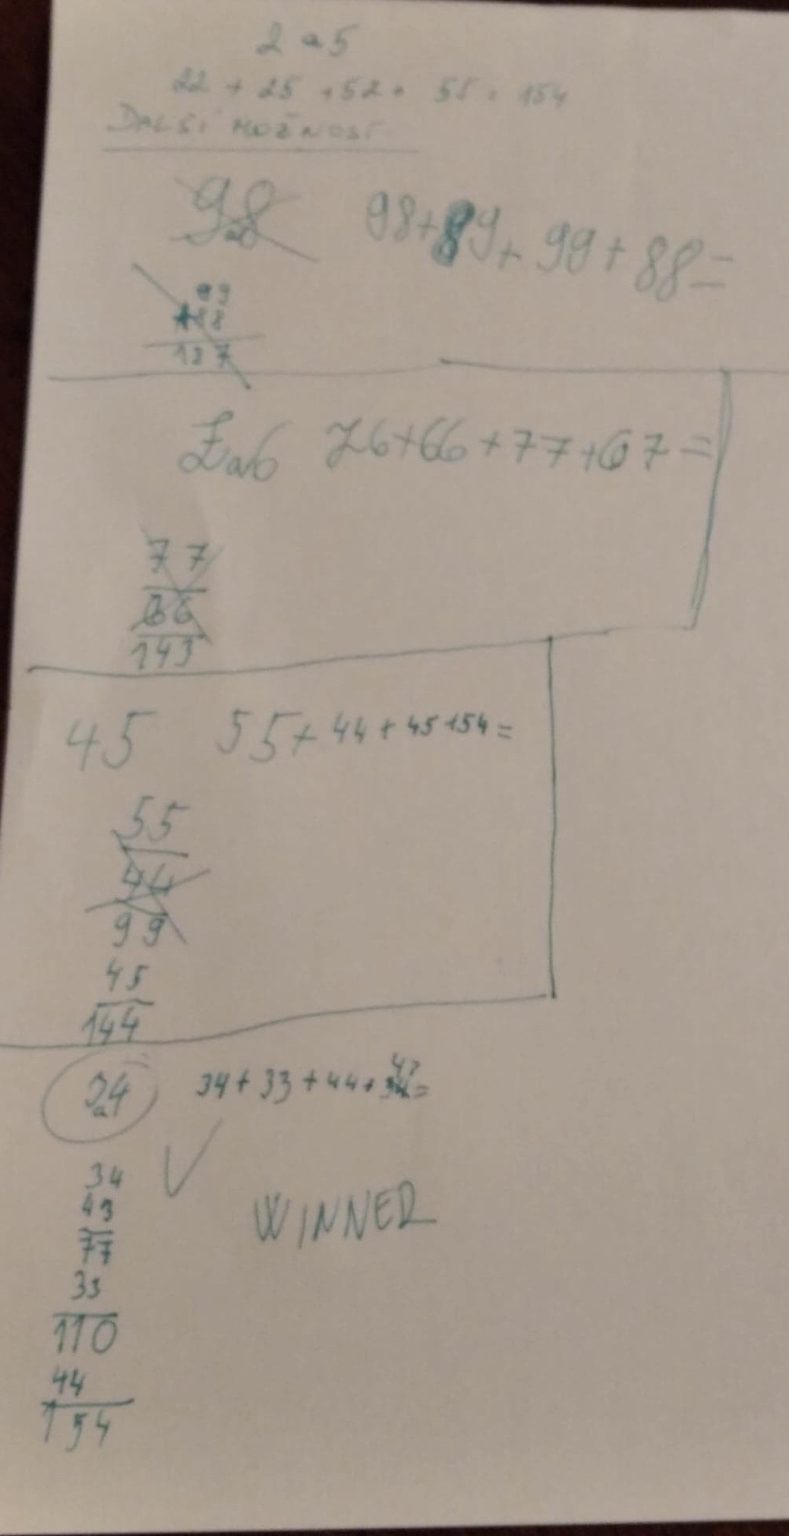 2 a 5
22 + 25 + 52 + 55 = 154
DALŠÍ MOŽNOST
9 a 8 98+89+99+88=
99
188
187
7 a 6 76+66+77+67=
77
66
143
45 55+44+45+54=
55
44
99
45
144
3 a 4 34+33+44+43=
34
43
77
WINNER
33
110
44
154